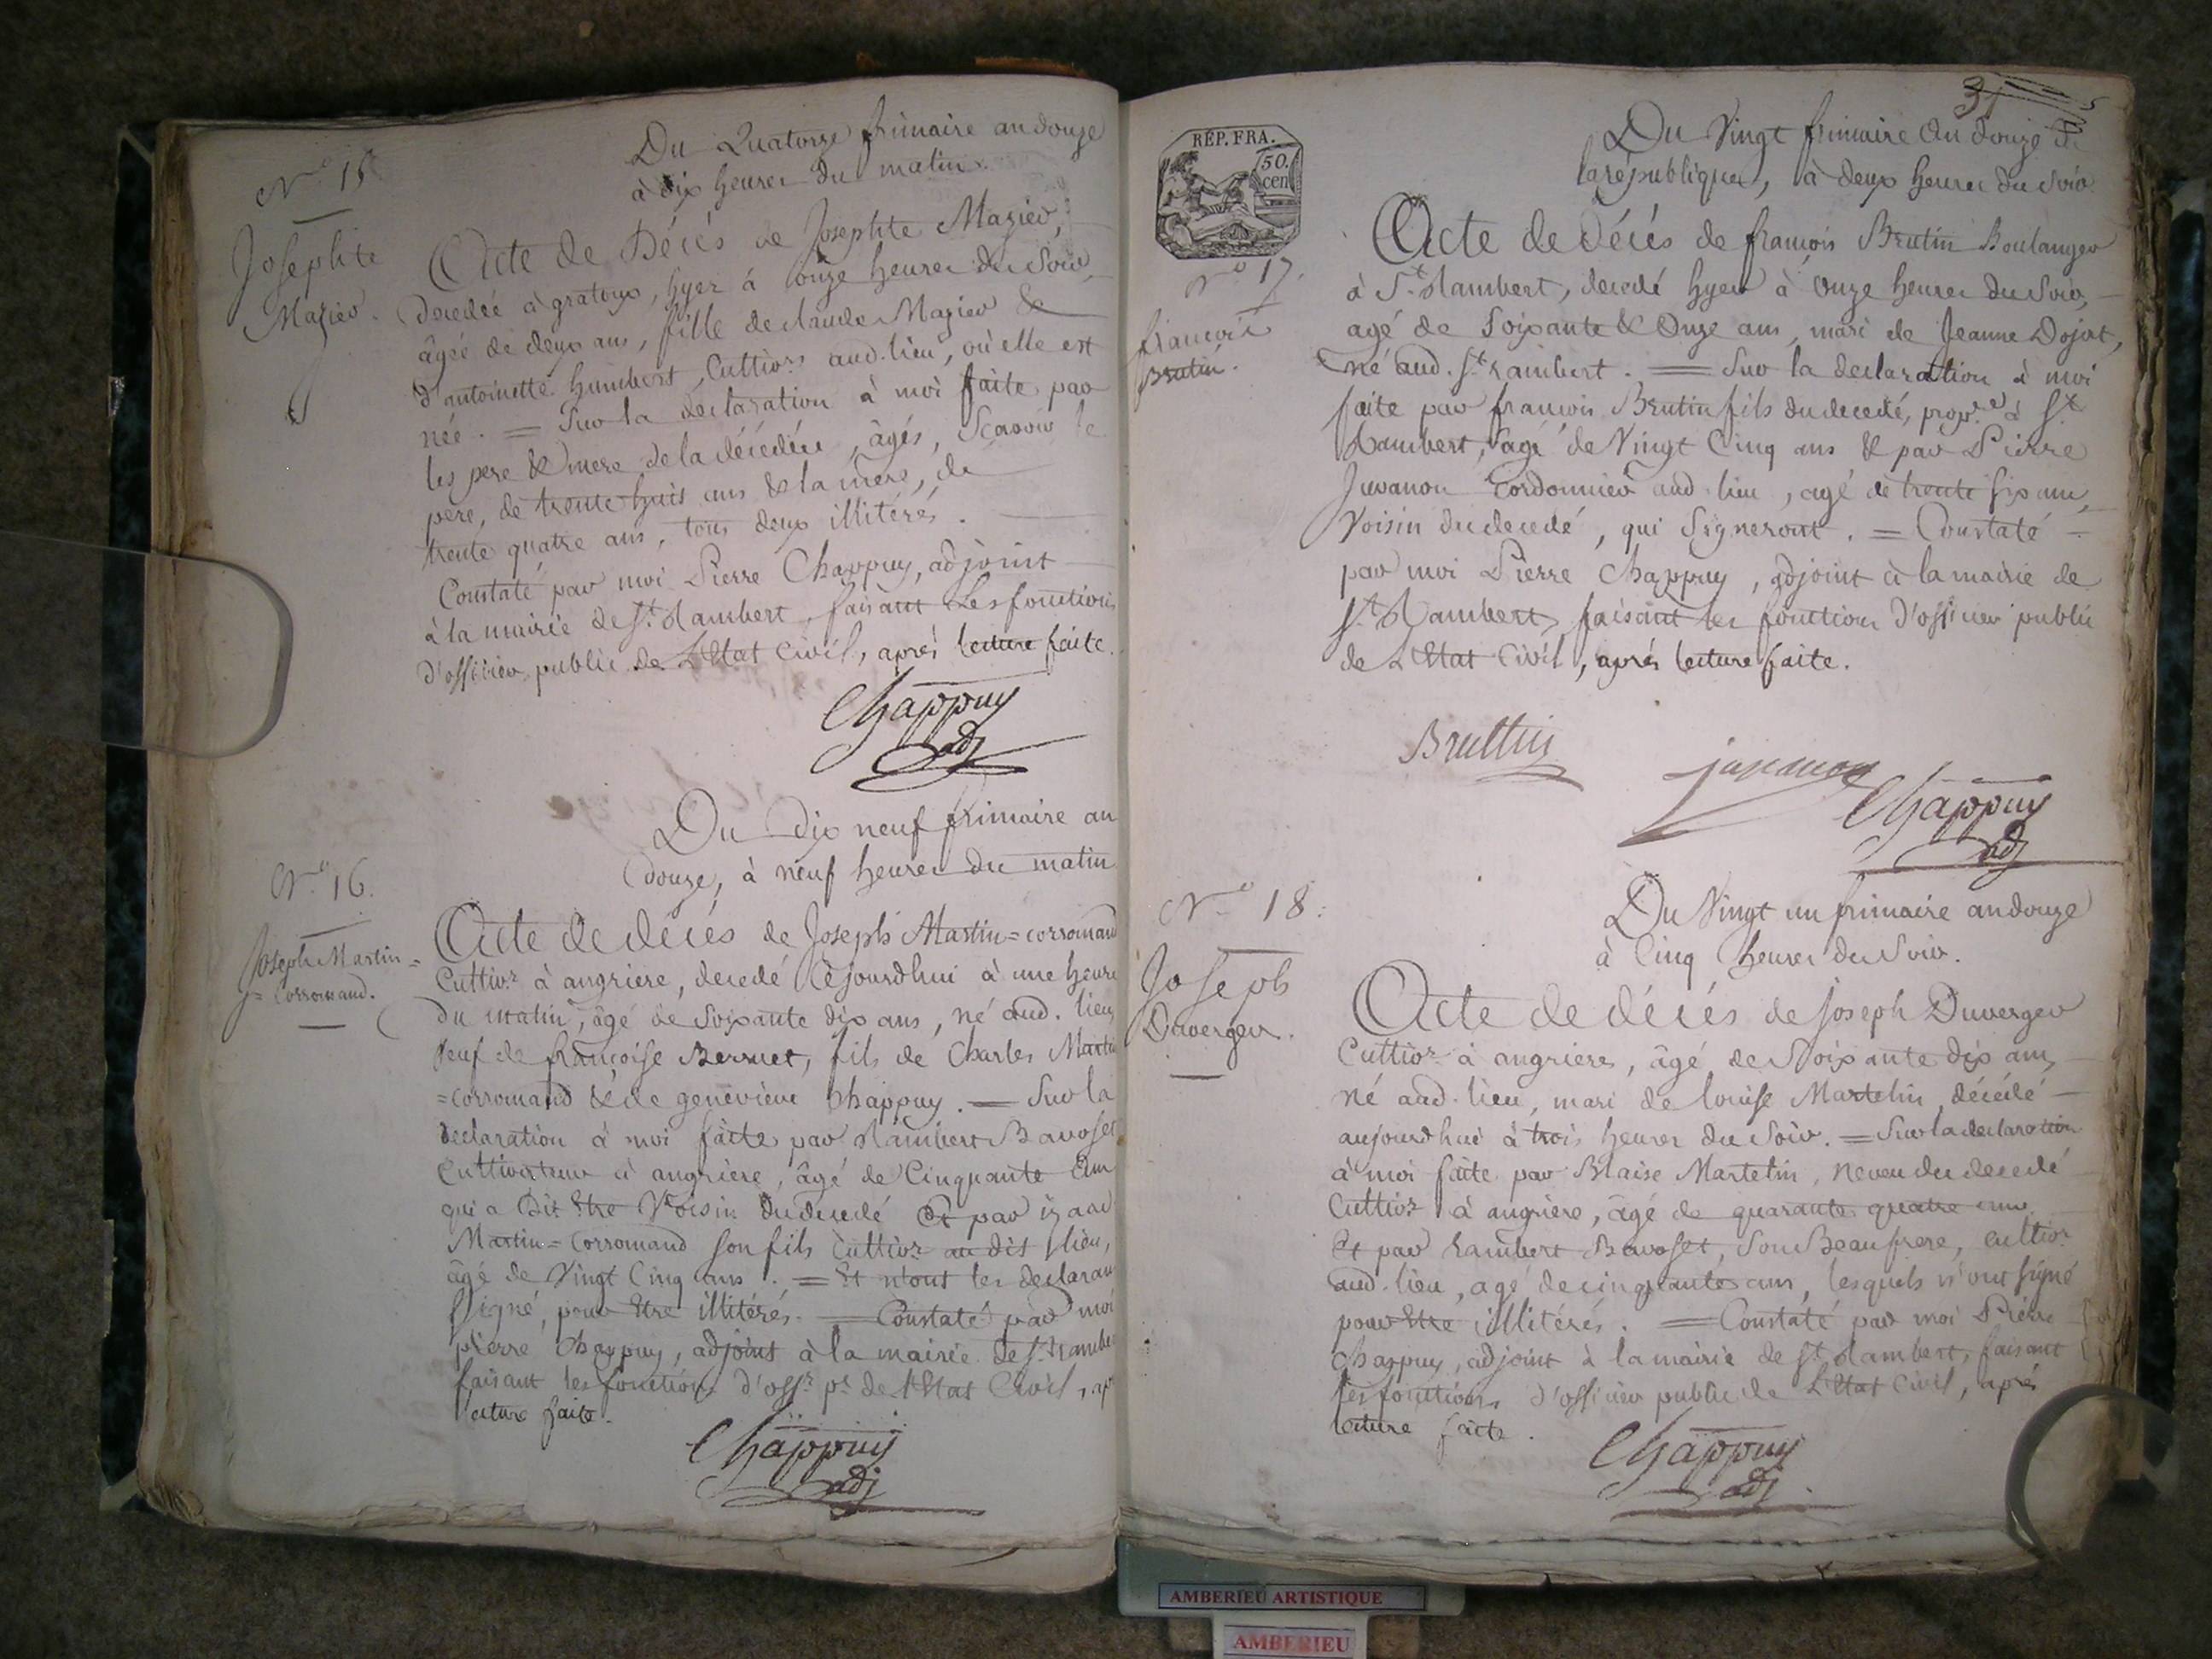 Du Quatorze frimaire an douze
à dix heures du matin.
N.o 15
Josephte
Mazier.
Acte de Décés de Josephte Mazier,
decedée à gratoux, hyer à onze heures du Soir,
âgée de deux ans, fille de claude Mazier &
d'antoinette humbert, Cultivrs aud. lieu, où elle est
née. = Sur la declaration à moi faite par
les pere & mere de la décédée, âgés, Scavoir le
pere, de trente huit ans & la mere, de
trente quatre ans, tous deux illitérés.
Constaté par moi Pierre Chappuy, adjoint
à la mairie de St. Rambert, faisant Les fonctions
d'officier public de L'Etat Civil, aprés lecture faite.
Chappuy
adj
Du Dix neuf frimaire an
douze, à neuf heures du matin
N.o 16.
Joseph Martin =
= Corromand.
Acte de décés de Joseph Martin=corromand
Cultivr. à angriere, decedé cejourdhui à une heure
du matin, âgé de Soixante dix ans, né aud. lieu
veuf de françoise Bernet, fils de Charles Martin
=corromand & de geneviève Chappuy. = Sur la
declaration à moi faite par Rambert Bavoset
Cultivateur à angriere, âgé de Cinquante ans
qui a Dit Etre Voisin du decedé Et par izaac
Martin=Corromand Son fils Cultivr au dit lieu,
âgé de Vingt Cinq ans. = Et n'ont les declarans
Signé, pour Etre illitérés. = Constaté par moi
pierre Chappuy, adjoint à la mairie de St. Rambert
faisant les fonctions d'offr. pc. de l'Etat Civil, apr
lecture faite.
Chappuy
adj
31
RÉP. FRA.
50.
cen
Du Vingt frimaire An douze de
la républiques, à deux heures du Soir.
N.o 17.
francois
Brutin.
Acte de décés de francois Brutin Boulanger
à St. Rambert, decedé hyer à Onze heures du Soir,
agé de Soixante & Onze ans, mari de Jeanne Dojat,
né aud. St. rambert. = Sur la declaration à moi
faite par francois Brutin fils du decedé, propre. à St.
Rambert, âgé de Vingt Cinq ans & par Pierre
Juvanon Cordonnier aud. lieu, agé de trente six ans,
Voisin du decedé, qui Signeront. = Constaté
par moi Pierre Chappuy, adjoint à la mairie de
St. Rambert, faisant les fonctions d'officier public
de L'Etat Civil, aprés lecture faite.
Bruttin
juvanon
Chappuy
adj
Du Vingt un frimaire an douze
à Cinq heures du Soir.
N.o 18.
Joseph
Duverger.
Acte de décés de Joseph Duverger
Cultivr. à angrieres, âgé de Soixante dix ans,
né aud. lieu, mari de louise Martelin, décédé
aujourdhui à trois heures du Soir. = Sur la declaration
à moi faite par Blaise Martelin, neveu du decedé
Cultivr. à angrière, âgé de quarante quatre ans.
Et par rambert Bavoset, Son Beaufrere, cultivr
aud. lieu, agé de cinquante ans, lesquels n'ont signé
pour Etre illitérés. = Constaté par moi Pierre
Chappuy, adjoint à la mairie de St. Rambert, faisant
les fonctions d'officier public de L'Etat Civil, aprés
lecture faite.
Chappuy
adj.
AMBERIEU ARTISTIQUE
AMBERIEU